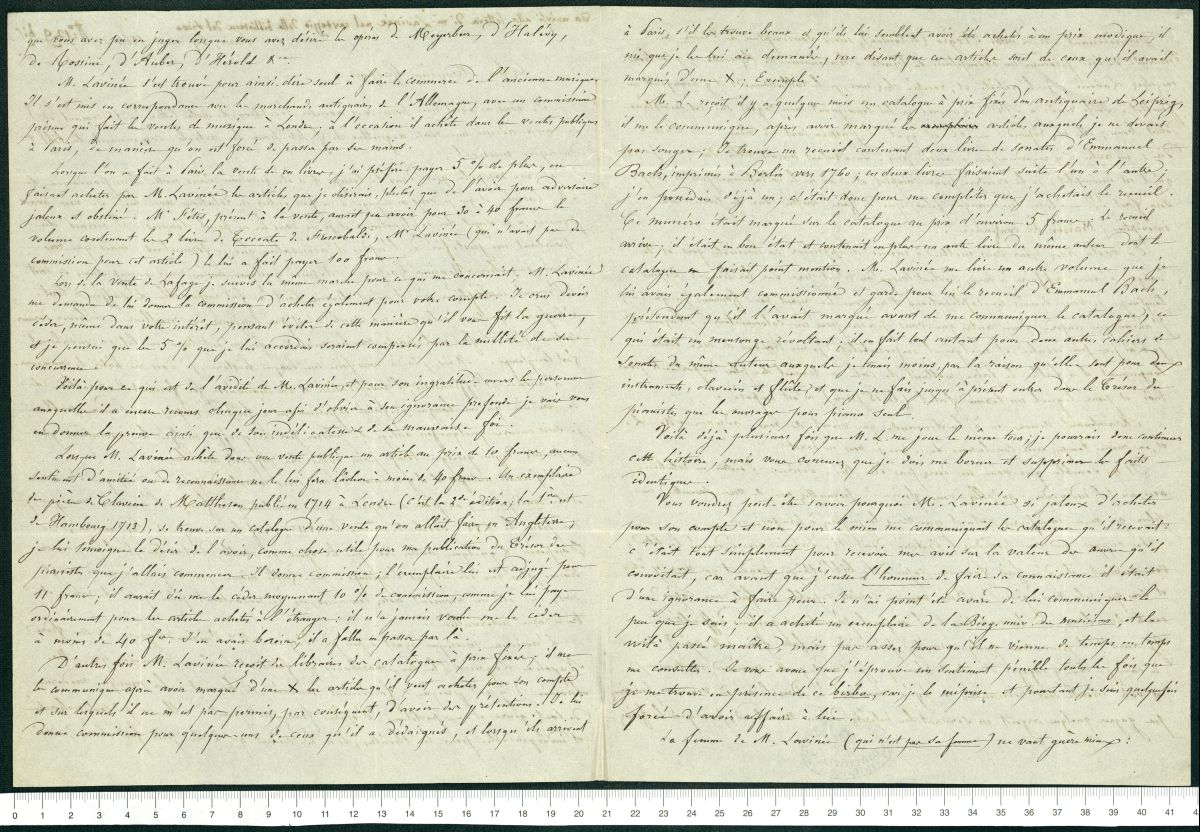 que vous avez pu en juger lorsque vous avez désiré les operas de Meyerbeer, d'Halévy,
de Rossini, d'Auber, d'Hérold &c.
M. Lavinée s'est trouvé pour ainsi dire seul à faire le commerce de l'ancienne musique,
Il s'est mis en correspondance avec les marchands antiquaires de l'Allemagne, avec un commissaire
priseur qui fait les ventes de musique à Londres; à l'occasion il achète dans les ventes publiques
à Paris, de manière qu'on est forcé de passer par ses mains.
Lorsque l'on a fait à Paris la vente de vos livres, j'ai préféré payer 5 % de plus, en
faisant acheter par M. Lavinée les articles que je désirais plutôt que de l'avoir pour adversaire
jaloux et obstiné. Mr Fétis, présent à la vente, aurait pu avoir pour 30 à 40 francs le
volume contenant les 2 livres de Toccate de Frescobaldi, Mr Lavinée (qui n'avait pas de
commission pour cet article) le lui a fait payer 100 francs.
Lors de la vente de Lafage je suivis la même marche pour ce qui me concernait. M. Lavinée
me demanda de lui donner la commission d'acheter également pour votre compte. Je crus devoir
céder, même dans votre intérêt, pensant éviter de cette manière qu'il vous fit la guerre,
et je pensais que les 5 % que je lui accordais seraient compensés par la nullité de sa
concurrence.
Voilà pour ce qui est de l'avidité de M. Lavinée, et pour son ingratitude envers les personnes
auxquelles il a encore recours chaque jour afin d'obvier à son ignorance profonde je vais vous
en donner la preuve ainsi que de son indélicatesse & de sa mauvaise foi.
Lorsque M. Lavinée achète dans une vente publique un article au prix de 10 francs aucun
sentiment d'amitié ou de reconnaissance ne le lui fera lâcher à moins de 40 francs. Un exemplaire
de pièces de Clavecin de Mattheson publié en 1714 à Londres (c'est la 2e édition, la 1ère est
de Hambourg 1713), se trouve sur un catalogue d'une vente qu'on allait faire en Angleterre,
je lui témoigne le désir de l'avoir, comme chose utile pour ma publication du Trésor des
pianistes que j'allais commencer. Il donne commission, l'exemplaire lui est adjugé pour
11 francs; il aurait dû me le céder moyennant 10 % de commission, comme je lui paye
ordinairement pour les articles achetés à l'étranger: il n'a jamais voulu me le céder
à moins de 40 fr. J'en avais besoin, il a fallu en passer par là.
D'autres fois M. Lavinée reçoit des libraires des catalogues à prix fixes; il me
les communique après avoir marqué d'une X les articles qu'il veut acheter pour son compte
et sur lesquels il ne m'est pas permis, par conséquent, d'avoir des prétentions. Je lui
donne commission pour quelques-uns de ceux qu'il a dédaignés, et lorsqu'ils arrivent
à Paris, s'il les trouve beaux et qu'ils lui semblent avoir été achetés à un prix modique, il
nie que je les lui aie demandés, me disant que ces articles sont de ceux qu'il avait
marqués d'une X; Exemple
M. L. reçoit il y a quelques mois un catalogue à prix fixes d'un antiquaire de Leipzig,
il me le communique, après avoir marqué les articles auxquels je ne devais
pas songer; Je trouve un recueil contenant deux livres de sonates d'Emmanuel
Bach, imprimés à Berlin vers 1760; ces deux livres faisaient suite l'un à l'autre;
j'en possédais déjà un; c'était donc pour me compléter que j'achetais le recueil.
Ce numéro était marqué sur le catalogue au prix d'environ 5 francs; Le recueil
arrive, il était en bon état et contenait en plus un autre livre du même auteur dont le
catalogue ne faisait point mention. M. Lavinée me livre un autre volume que je
lui avais également commissionné et garde pour lui le recueil d'Emmanuel Bach,
prétendant qu'il l'avait marqué avant de me communiquer le catalogue, ce
qui était un mensonge révoltant, il en fait tout autant pour deux autres cahiers de
Sonates du même Auteur auxquels je tenais moins, par la raison qu'elles sont pour deux
instruments, clavecin et flûte, et que je ne fais jusqu'à présent entrer dans le Trésor des
pianistes que les ouvrages pour piano seul.
Voilà déjà plusieurs fois que M. L. me joue le même tour; je pourrais donc continuer
cette histoire, mais vous concevez que je dois me borner et supprimer les faits
identiques.
Vous voudrez peut-être savoir pourquoi M. Lavinée si jaloux d'acheter
pour son compte et non pour le mien me communiquait les catalogues qu'il recevait?
c'était tout simplement pour recevoir mes avis sur la valeur des œuvres qu'il
convoitait, car avant que j'eusse l'honneur de faire sa connaissance il était
d'une ignorance à faire peur. Je n'ai point été avare de lui communiquer le
peu que je sais, il a acheté un exemplaire de la Biog. univ. des musiciens, et le
voilà passé maître, mais pas assez pour qu'il ne vienne de temps en temps
me consulter. Je vous avoue que j'éprouve un sentiment pénible toutes les fois que
je me trouve en présence de ce birbo, car je le méprise et pourtant je suis quelquefois
forcé d'avoir affaire à lui.
La femme de M. Lavinée (qui n'est pas sa femme) ne vaut guère mieux: